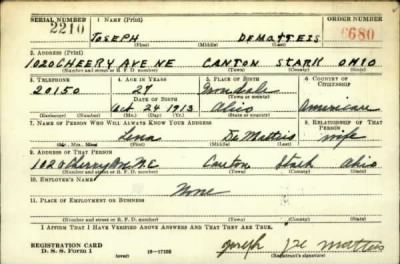 SERIAL NUMBER 1. NAME (Print) ORDER NUMBER
2210 JOSEPH DEMATTEIS 680
(First) (Middle) (Last)
2. ADDRESS (Print)
1020 CHEERY AVE NE CANTON STARK OHIO
(Number and street or R. F. D. number) (Town) (County) (State)
3. TELEPHONE 4. AGE IN YEARS 5. PLACE OF BIRTH 6. COUNTRY OF CITIZENSHIP
20150 27 Irondale
DATE OF BIRTH (Town or county)
Oct 24 1913 Ohio American
(Exchange) (Number) (Mo.) (Day) (Yr.) (State or country)
7. NAME OF PERSON WHO WILL ALWAYS KNOW YOUR ADDRESS 8. RELATIONSHIP OF THAT PERSON
Lena De Matteis wife
(Mr., Mrs., Miss) (First) (Middle) (Last)
9. ADDRESS OF THAT PERSON
1020 Cherry Ave N.E. Canton Stark Ohio
(Number and street or R. F. D. number) (Town) (County) (State)
10. EMPLOYER'S NAME
None
11. PLACE OF EMPLOYMENT OR BUSINESS
(Number and street or R. F. D. number) (Town) (County) (State)
I AFFIRM THAT I HAVE VERIFIED ABOVE ANSWERS AND THAT THEY ARE TRUE.
REGISTRATION CARD
D. S. S. Form 1 (over) 16—17105 Joseph De Matteis
(Registrant's signature)